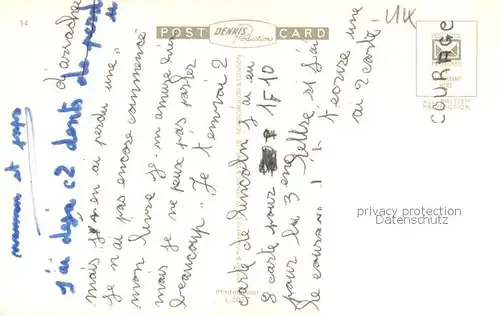 34
POST CARD
DENNIS
Productions
UK
COURAGE
maman et papa
j'ai déjà 2 dents de perdu
d'arracher
mais j'en ai perdu une"
je n'ai pas encore commencé
mon livre je m'amuse bien
mais je ne peux pas parler
beaucoup. Je t'envoi 2
carte de lincoln j'ai eu
8 carte pour 1F10
pour les 3 en
le courant
si j'ai
t'ecrire une
ai 2 carte
privacy protection
Datenschutz